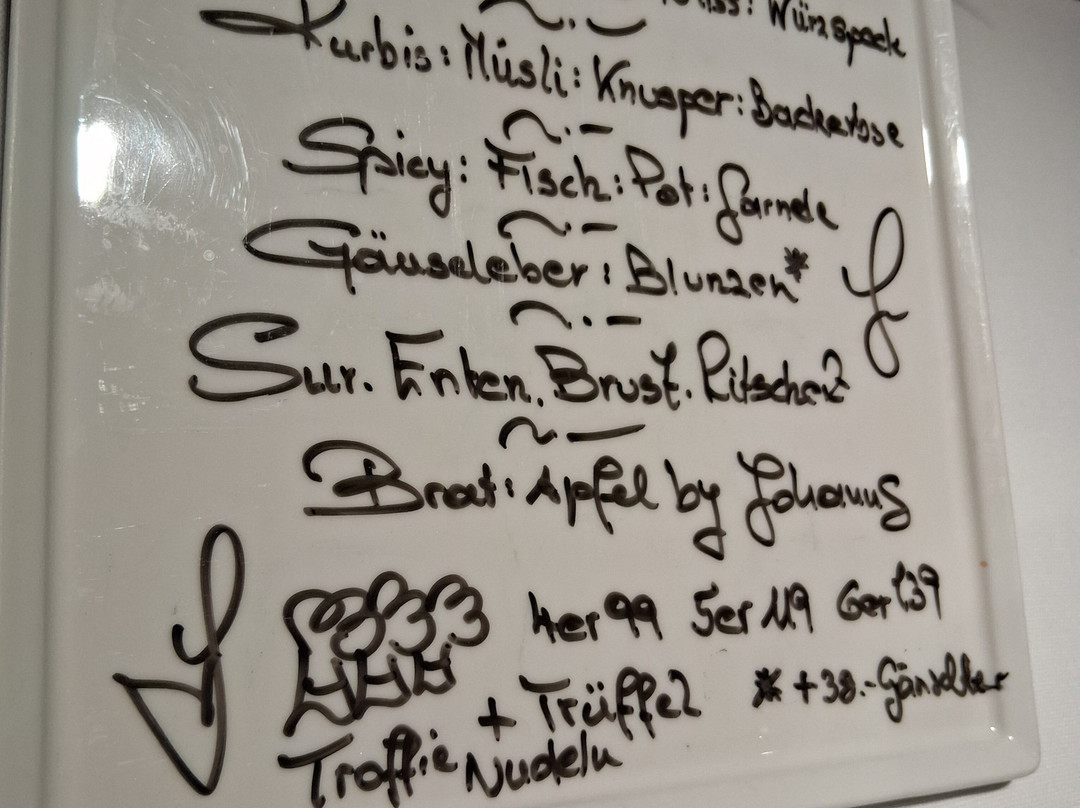 Wünspeck
Kürbis: Müsli: Knusper: Backerbse
Spicy: Fisch: Pot: Garnele
Gänseleber: Blunzen*
Sur. Enten. Brust. Ritschal
Brat: Apfel by Johanns
4er 99 5er 119 6er 139
+ Trüffel * +38.- Gänseleber
Troffie Nudeln